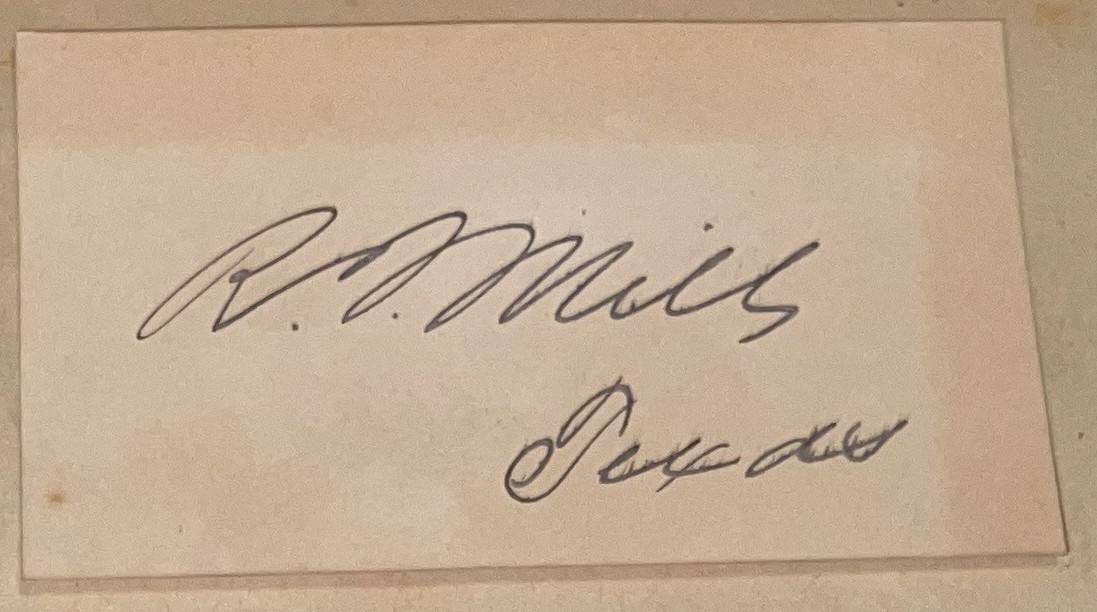 R. Q. Mills
Texas